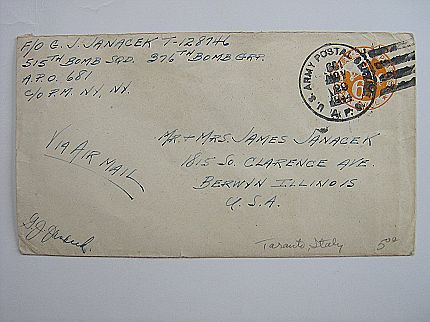 F/O G. J. JANACEK T-128746
515TH BOMB SQD. 376TH BOMB GRP.
A.P.O. 681
C/O P.M. NY, NY.
U.S. ARMY POSTAL SERVICE
A.P.O.
6
VIA AIR MAIL
MR + MRS. JAMES JANACEK
1815 SO. CLARENCE AVE.
BERWYN ILLINOIS
U.S.A.
GJ Janacek
Taranto, Italy
5.00